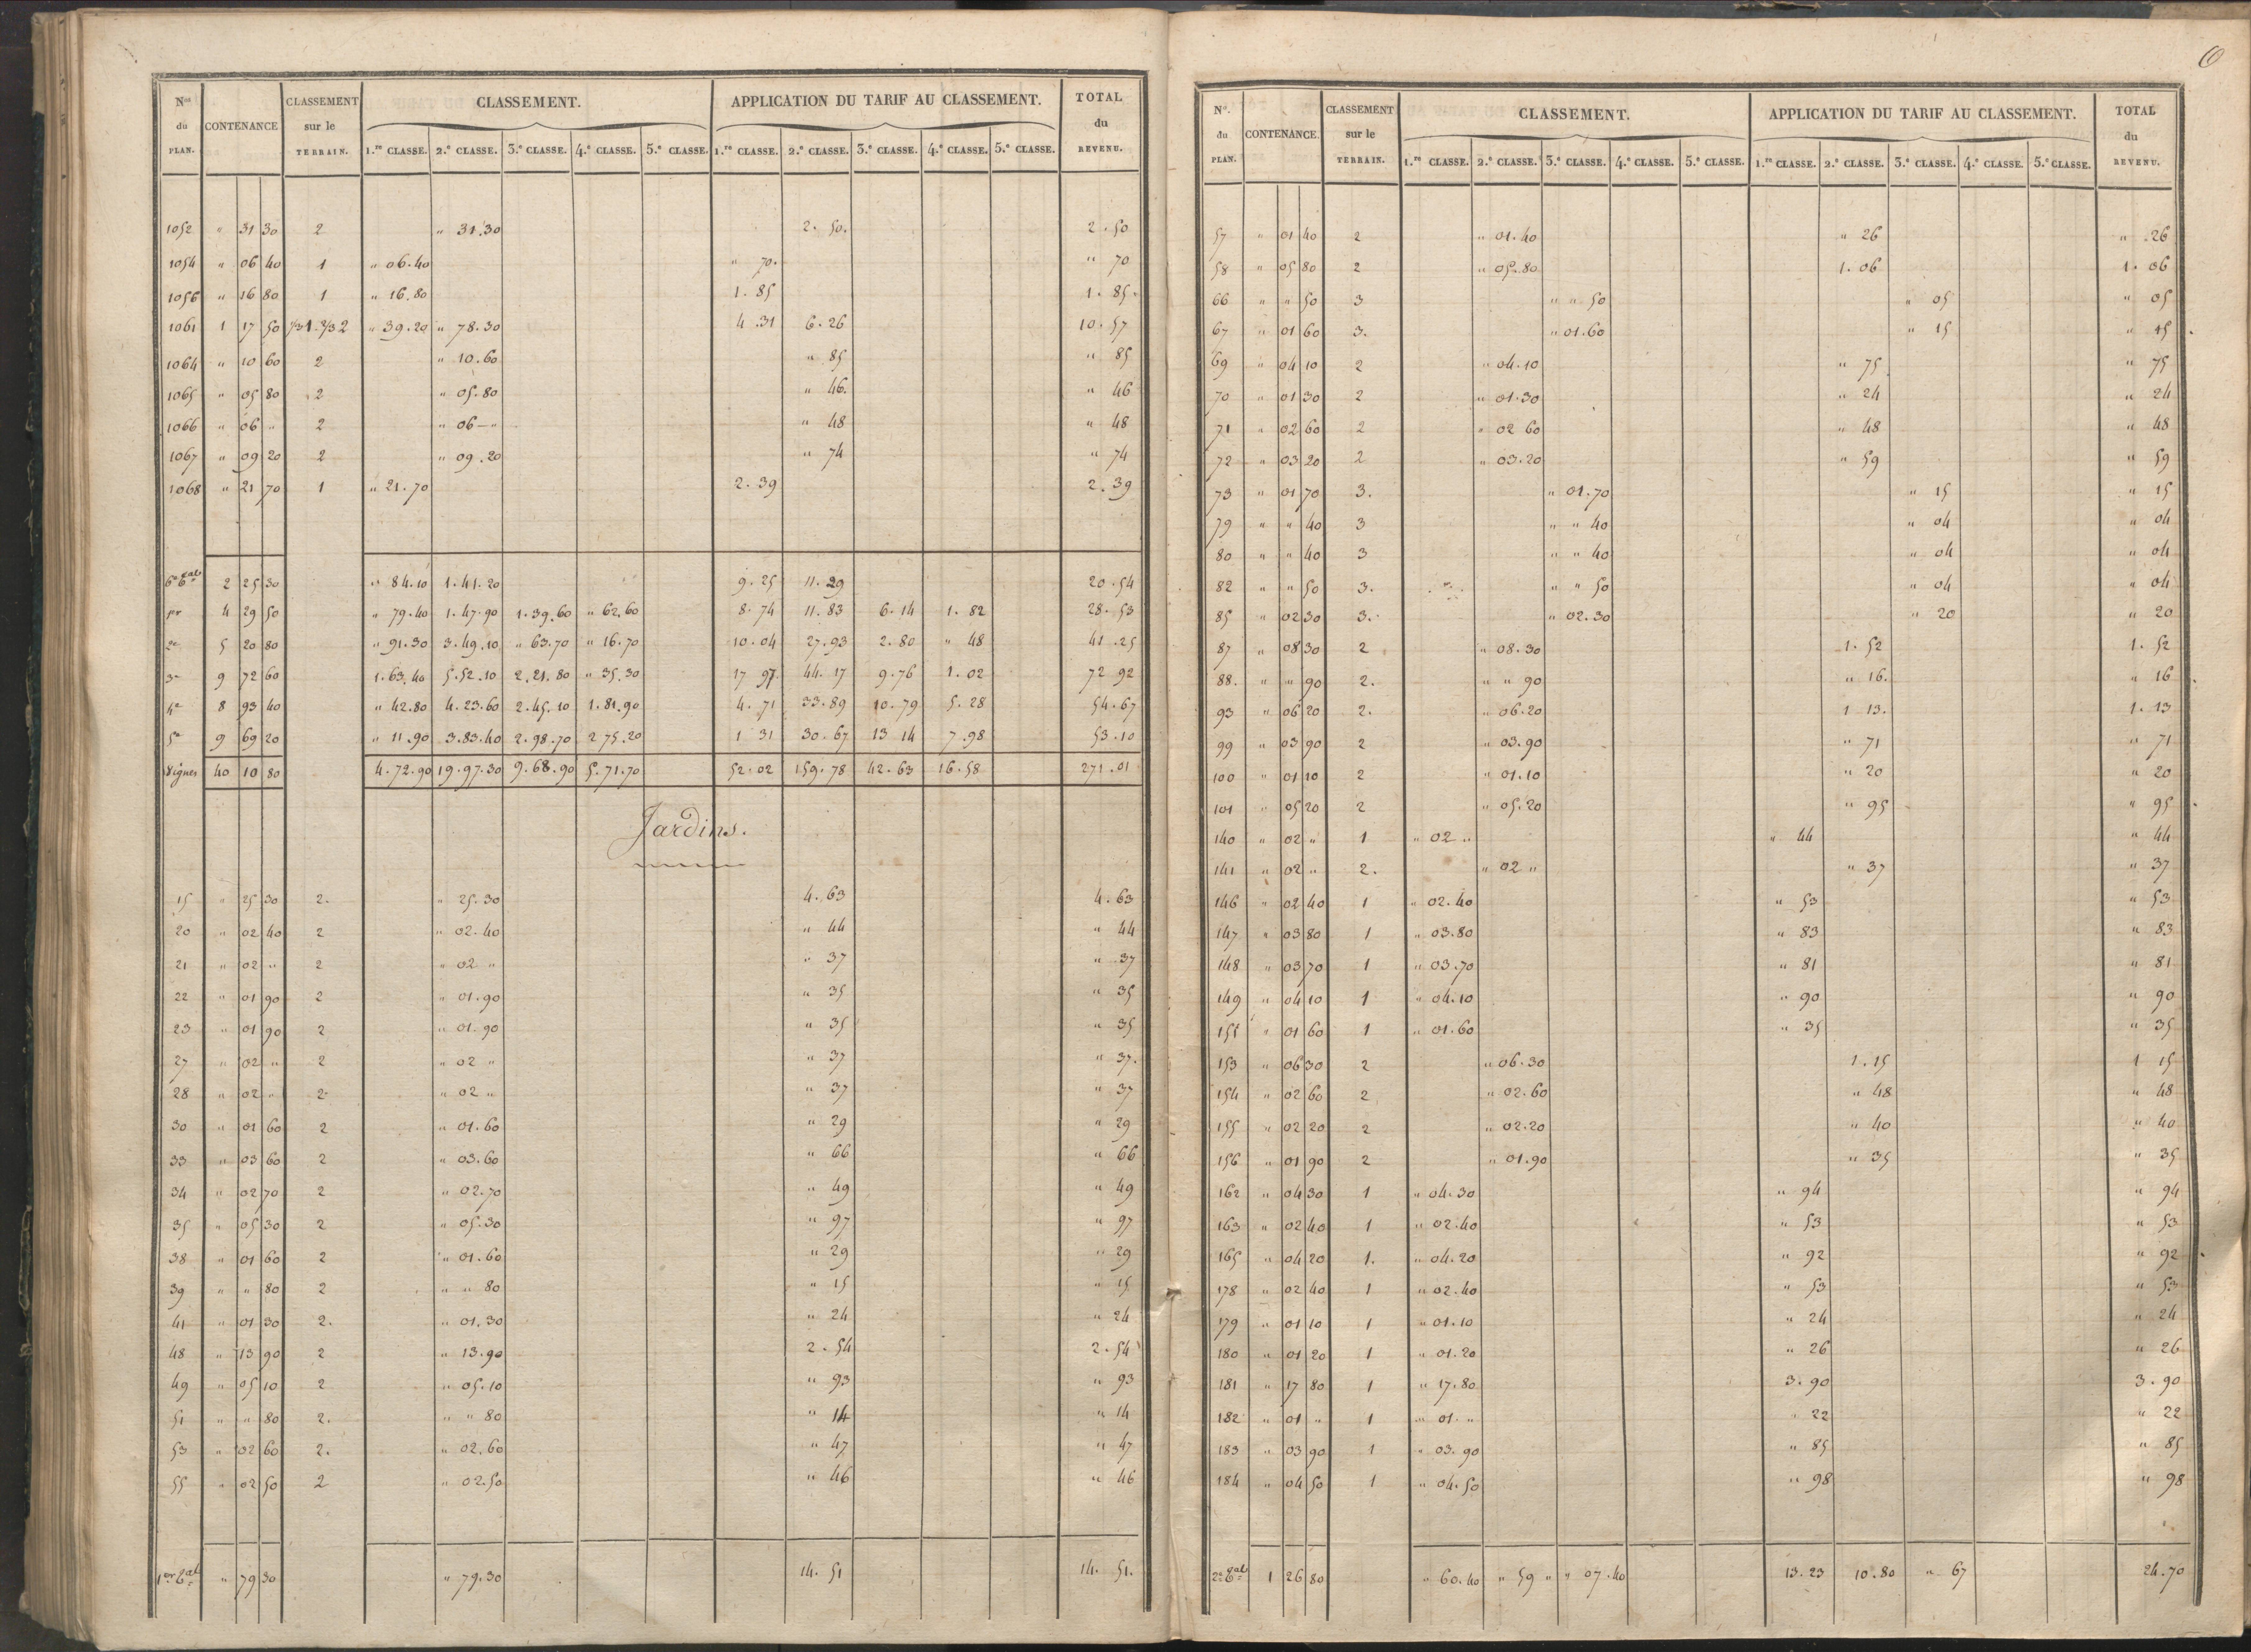 Nos du PLAN. CONTENANCE CLASSEMENT sur le TERRAIN. CLASSEMENT. APPLICATION DU TARIF AU CLASSEMENT. TOTAL du REVENU.
1.re CLASSE. 2.e CLASSE. 3.e CLASSE. 4.e CLASSE. 5.e CLASSE. 1.re CLASSE. 2.e CLASSE. 3.e CLASSE. 4.e CLASSE. 5.e CLASSE.
1052 " 31 30 2 " 31.30 2. 50. 2. 50
1054 " 06 40 1 " 06.40 " 70. " 70
1056 " 16 80 1 " 16.80 1. 85 1. 85.
1061 1 17 50 1/3 1. 2/3 2 " 39.20 " 78.30 4.31 6.26 10.57
1064 " 10 60 2 " 10.60 " 85 " 85
1065 " 05 80 2 " 05.80 " 46. " 46
1066 " 06 " 2 " 06 - " " 48 " 48
1067 " 09 20 2 " 09.20 " 74 " 74
1068 " 21 70 1 " 21.70 2. 39 2. 39
6e Tal 2 25 30 " 84.10 1.41.20 9. 25 11. 29 20.54
1er 4 29 50 " 79.40 1.47.90 1.39.60 " 62.60 8. 74 11. 83 6. 14 1. 82 28. 53
2e 5 20 80 " 91.30 3.49.10 " 63.70 " 16.70 10.04 27.93 2. 80 " 48 41.25
3e 9 72 60 1.63.40 5.52.10 2.21.80 " 35.30 17 97 44. 17 9.76 1. 02 72 92
4e 8 93 40 " 42.80 4.23.60 2.45.10 1.81.90 4. 71 33.89 10.79 5. 28 54.67
5e 9 69 20 " 11.90 3.83.40 2.98.70 2 75.20 1 31 30.67 13 14 7.98 53.10
Vignes 40 10 80 4.72.90 19.97.30 9.68.90 5.71.70 52.02 159.78 42.63 16.58 271.01
Jardins.
15 " 25 30 2. " 25.30 4. 63 4. 63
20 " 02 40 2 " 02.40 " 44 " 44
21 " 02 " 2 " 02 " " 37 " 37
22 " 01 90 2 " 01.90 " 35 " 35
23 " 01 90 2 " 01.90 " 35 " 35
27 " 02 " 2 " 02 " " 37 " 37.
28 " 02 " 2 " 02 " " 37 " 37
30 " 01 60 2 " 01.60 " 29 " 29
33 " 03 60 2 " 03.60 " 66 " 66
34 " 02 70 2 " 02.70 " 49 " 49
35 " 05 30 2 " 05.30 " 97 " 97
38 " 01 60 2 " 01.60 " 29 " 29
39 " " 80 2 " " 80 " 15 " 15
41 " 01 30 2. " 01.30 " 24 " 24
48 " 13 90 2 " 13.90 2. 54 2. 54
49 " 05 10 2 " 05.10 " 93 " 93
51 " " 80 2. " " 80 " 14 " 14
53 " 02 60 2. " 02.60 " 47 " 47
55 " 02 50 2 " 02.50 " 46 " 46
1er Tal " 79 30 " 79.30 14. 51 14. 51.
6
No. du PLAN. CONTENANCE. CLASSEMENT sur le TERRAIN. CLASSEMENT. APPLICATION DU TARIF AU CLASSEMENT. TOTAL du REVENU.
1.re CLASSE. 2.e CLASSE. 3.e CLASSE. 4.e CLASSE. 5.e CLASSE. 1.re CLASSE. 2.e CLASSE. 3.e CLASSE. 4.e CLASSE. 5.e CLASSE.
57 " 01 40 2 " 01.40 " 26 " 26
58 " 05 80 2 " 05.80 1. 06 1. 06
66 " " 50 3 " " 50 " 05 " 05
67 " 01 60 3. " 01.60 " 15 " 15
69 " 04 10 2 " 04.10 " 75 " 75
70 " 01 30 2 " 01.30 " 24 " 24
71 " 02 60 2 " 02 60 " 48 " 48
72 " 03 20 2 " 03.20 " 59 " 59
73 " 01 70 3. " 01.70 " 15 " 15
79 " " 40 3 " " 40 " 04 " 04
80 " " 40 3 " " 40 " 04 " 04
82 " " 50 3. " " 50 " 04 " 04
85 " 02 30 3. " 02.30 " 20 " 20
87 " 08 30 2 " 08.30 1. 52 1. 52
88. " " 90 2. " " 90 " 16. " 16
93 " 06 20 2. " 06.20 1 13. 1. 13
99 " 03 90 2 " 03.90 " 71 " 71
100 " 01 10 2 " 01.10 " 20 " 20
101 " 05 20 2 " 05.20 " 95 " 95
140 " 02 " 1 " 02 " " 44 " 44
141 " 02 " 2. " 02 " " 37 " 37
146 " 02 40 1 " 02.40 " 53 " 53
147 " 03 80 1 " 03.80 " 83 " 83
148 " 03 70 1 " 03.70 " 81 " 81
149 " 04 10 1 " 04.10 " 90 " 90
151 " 01 60 1 " 01.60 " 35 " 35
153 " 06 30 2 " 06.30 1. 15 1 15
154 " 02 60 2 " 02.60 " 48 " 48
155 " 02 20 2 " 02.20 " 40 " 40
156 " 01 90 2 " 01.90 " 35 " 35
162 " 04 30 1 " 04.30 " 94 " 94
163 " 02 40 1 " 02.40 " 53 " 53
165 " 04 20 1. " 04.20 " 92 " 92
178 " 02 40 1 " 02.40 " 53 " 53
179 " 01 10 1 " 01.10 " 24 " 24
180 " 01 20 1 " 01.20 " 26 " 26
181 " 17 80 1 " 17.80 3. 90 3. 90
182 " 01 " 1 " 01. " " 22 " 22
183 " 03 90 1 " 03.90 " 85 " 85
184 " 04 50 1 " 04.50 " 98 " 98
2e Tal 1 26 80 " 60.40 " 59 " " 07.40 13. 23 10.80 " 67 24.70